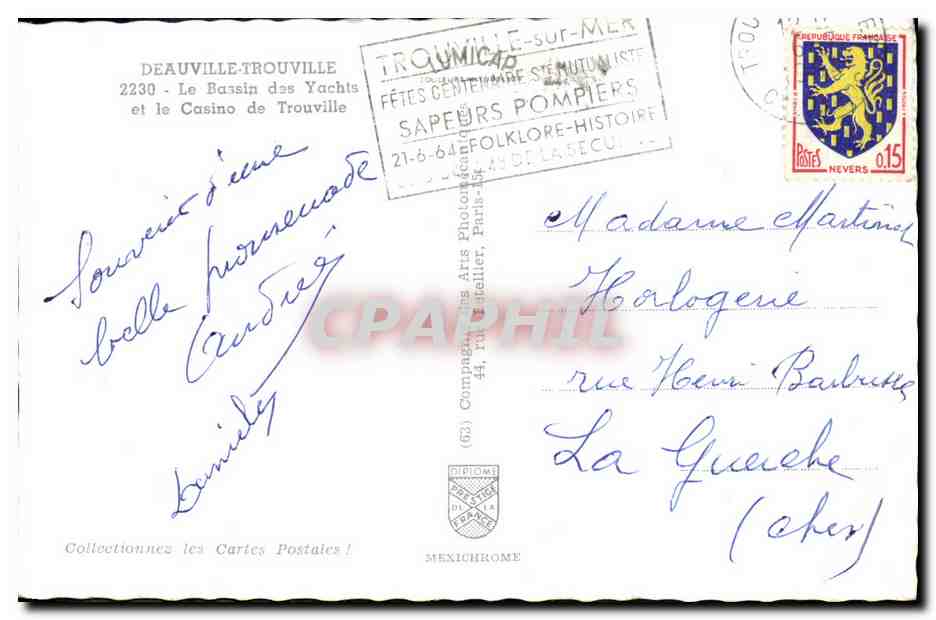 DEAUVILLE-TROUVILLE
2230 - Le Bassin des Yachts
et le Casino de Trouville
TROUVILLE-sur-MER
LUMICAP
FÊTES CENTENAIRE Sté MUTUALISTE
SAPEURS POMPIERS
21-6-64 FOLKLORE-HISTOIRE
DE LA SECU
TRO
REPUBLIQUE FRANÇAISE
POSTES
0,15
NEVERS
Souvenir d'une
belle promenade
André
Danielle
Madame Martinet
Horlogerie
rue Henri Barbusse
La Guerche
(Cher)
CPAPHIL
(63) Compagnie des Arts Photomécaniques
44, rue Letellier, Paris-15e
DIPLOME
PRESTIGE
DE LA
FRANCE
MEXICHROME
Collectionnez les Cartes Postales !